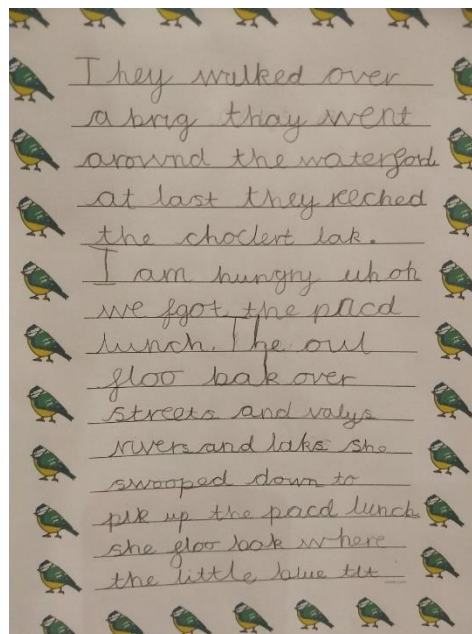 They walked over
a brig thay went
arownd the waterforls
at last they reeched
the choclert lak.
I am hungry uh oh
we fgot the pacd
lunch. The owl
floo bak over
streets and valys
rivers and laks she
swooped down to
pik up the pacd lunch
she floo bak where
the little blue tit